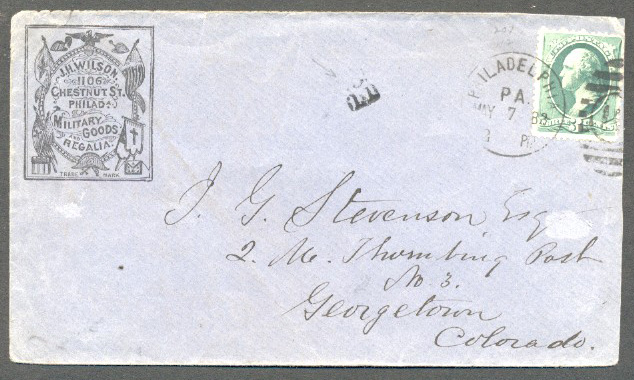 J.H. WILSON,
1106
CHESTNUT ST.
PHILADA
MILITARY
GOODS
AND
REGALIA.
TRADE MARK
PHILADELPHIA
PA.
MAY 7 83
J. G. Stevenson Esq
2. M. Thornbury Post
No 3.
Georgetown
Colorado.